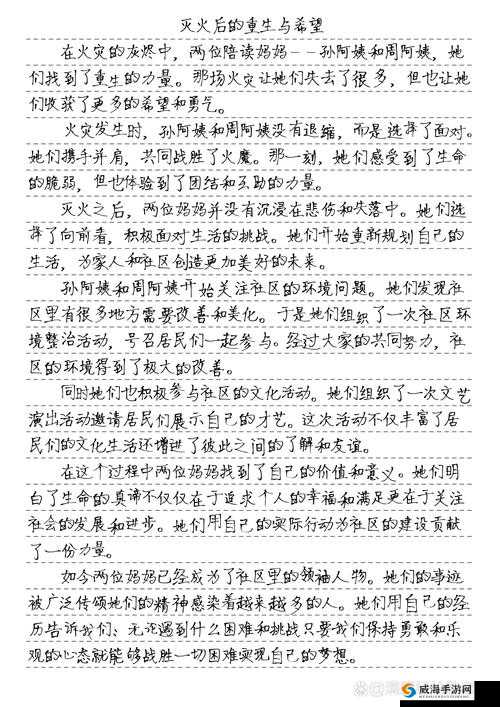 灭火后的重生与希望
在火灾的灰烬中，两位陪读妈妈--孙阿姨和周阿姨，她
们找到了重生的力量。那场火灾让她们失去了很多，但也让她
们收获了更多的希望和勇气。
火灾发生时，孙阿姨和周阿姨没有退缩，而是选择了面对。
她们携手并肩，共同战胜了火魔。那一刻，她们感受到了生命
的脆弱，但也体验到了团结和互助的力量。
灭火之后，两位妈妈并没有沉浸在悲伤和失落中。她们选
择了向前看，积极面对生活的挑战。她们开始重新规划自己的
生活，为家人和社区创造更加美好的未来。
孙阿姨和周阿姨开始关注社区的环境问题。她们发现社
区里有很多地方需要改善和美化。于是她们组织了一次社区环
境整治活动，号召居民们一起参与。经过大家的共同努力，社
区的环境得到了极大的改善。
同时她们也积极参与社区的文化活动。她们组织了一次文艺
演出活动邀请居民们展示自己的才艺。这次活动不仅丰富了居
民们的文化生活还增进了彼此之间的了解和友谊。
在这个过程中两位妈妈找到了自己的价值和意义。她们明
白了生命的真谛不仅仅在于追求个人的幸福和满足更在于关注
社会的发展和进步。她们用自己的实际行动为社区的建设贡献
了一份力量。
如今两位妈妈已经成为了社区里的领袖人物。她们的事迹
被广泛传颂她们的精神感染着越来越多的人。她们用自己的经
历告诉我们：无论遇到什么困难和挑战只要我们保持勇敢和乐
观的心态就能够战胜一切困难实现自己的梦想。
威海手游网